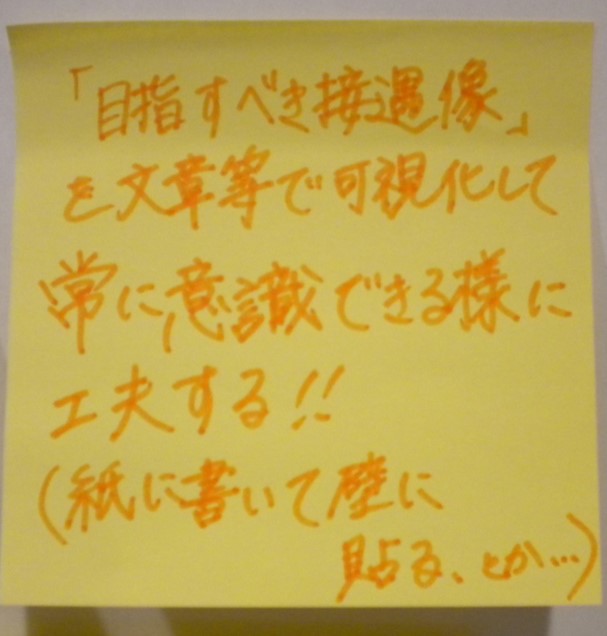 「目指すべき接遇像」
を文章等で可視化して
常に意識できる様に
工夫する!!
(紙に書いて壁に
貼る、とか…)